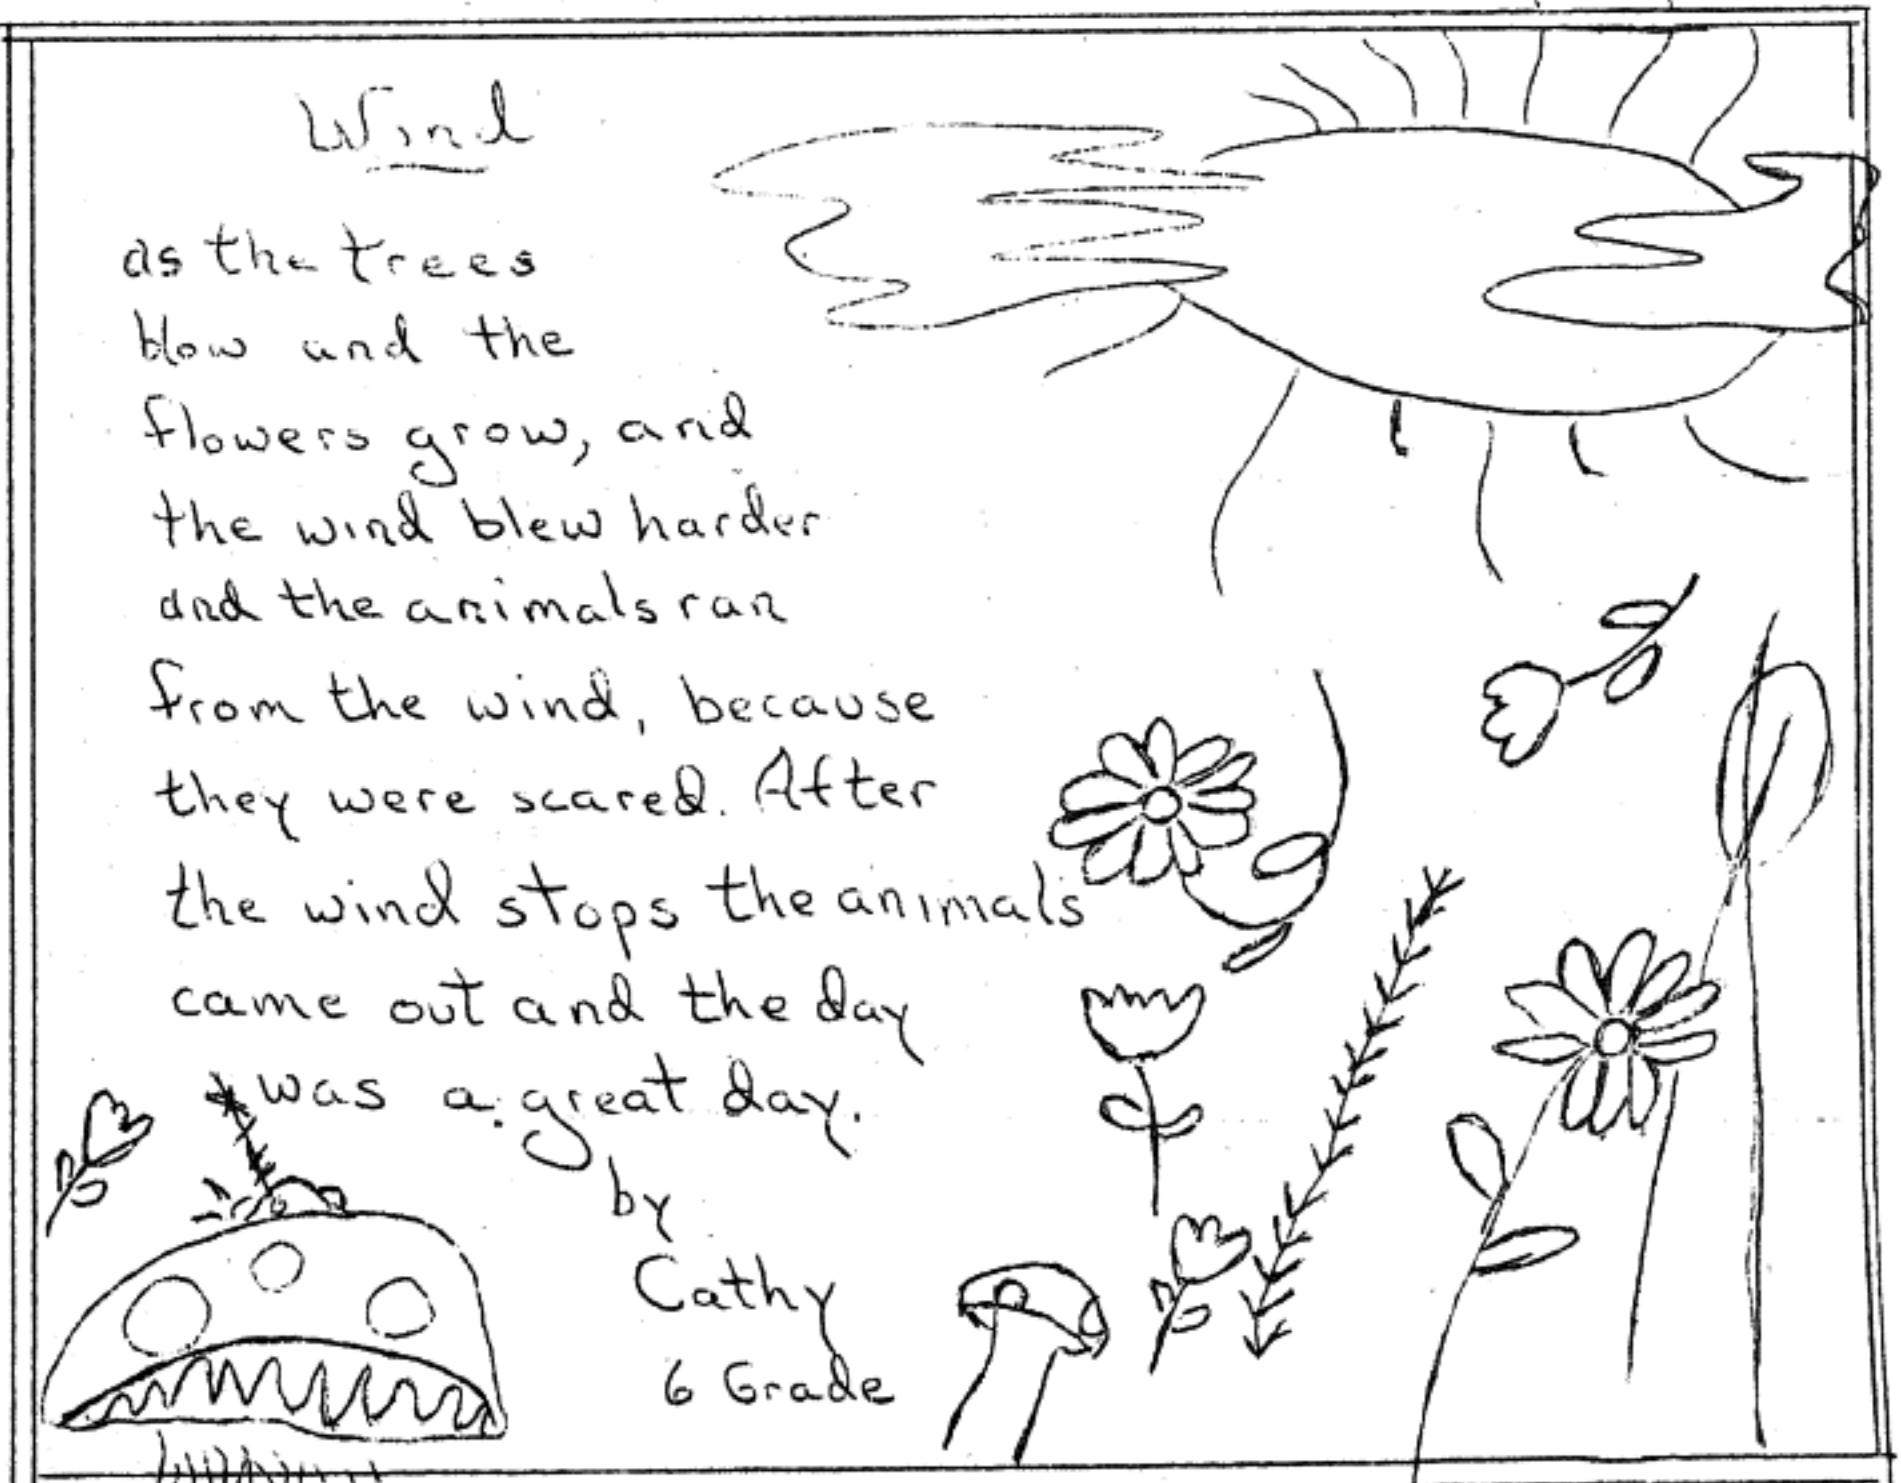 Wind
as the trees
blow and the
flowers grow, and
the wind blew harder
and the animals ran
from the wind, because
they were scared. After
the wind stops the animals
came out and the day
was a great day.
by
Cathy
6 Grade